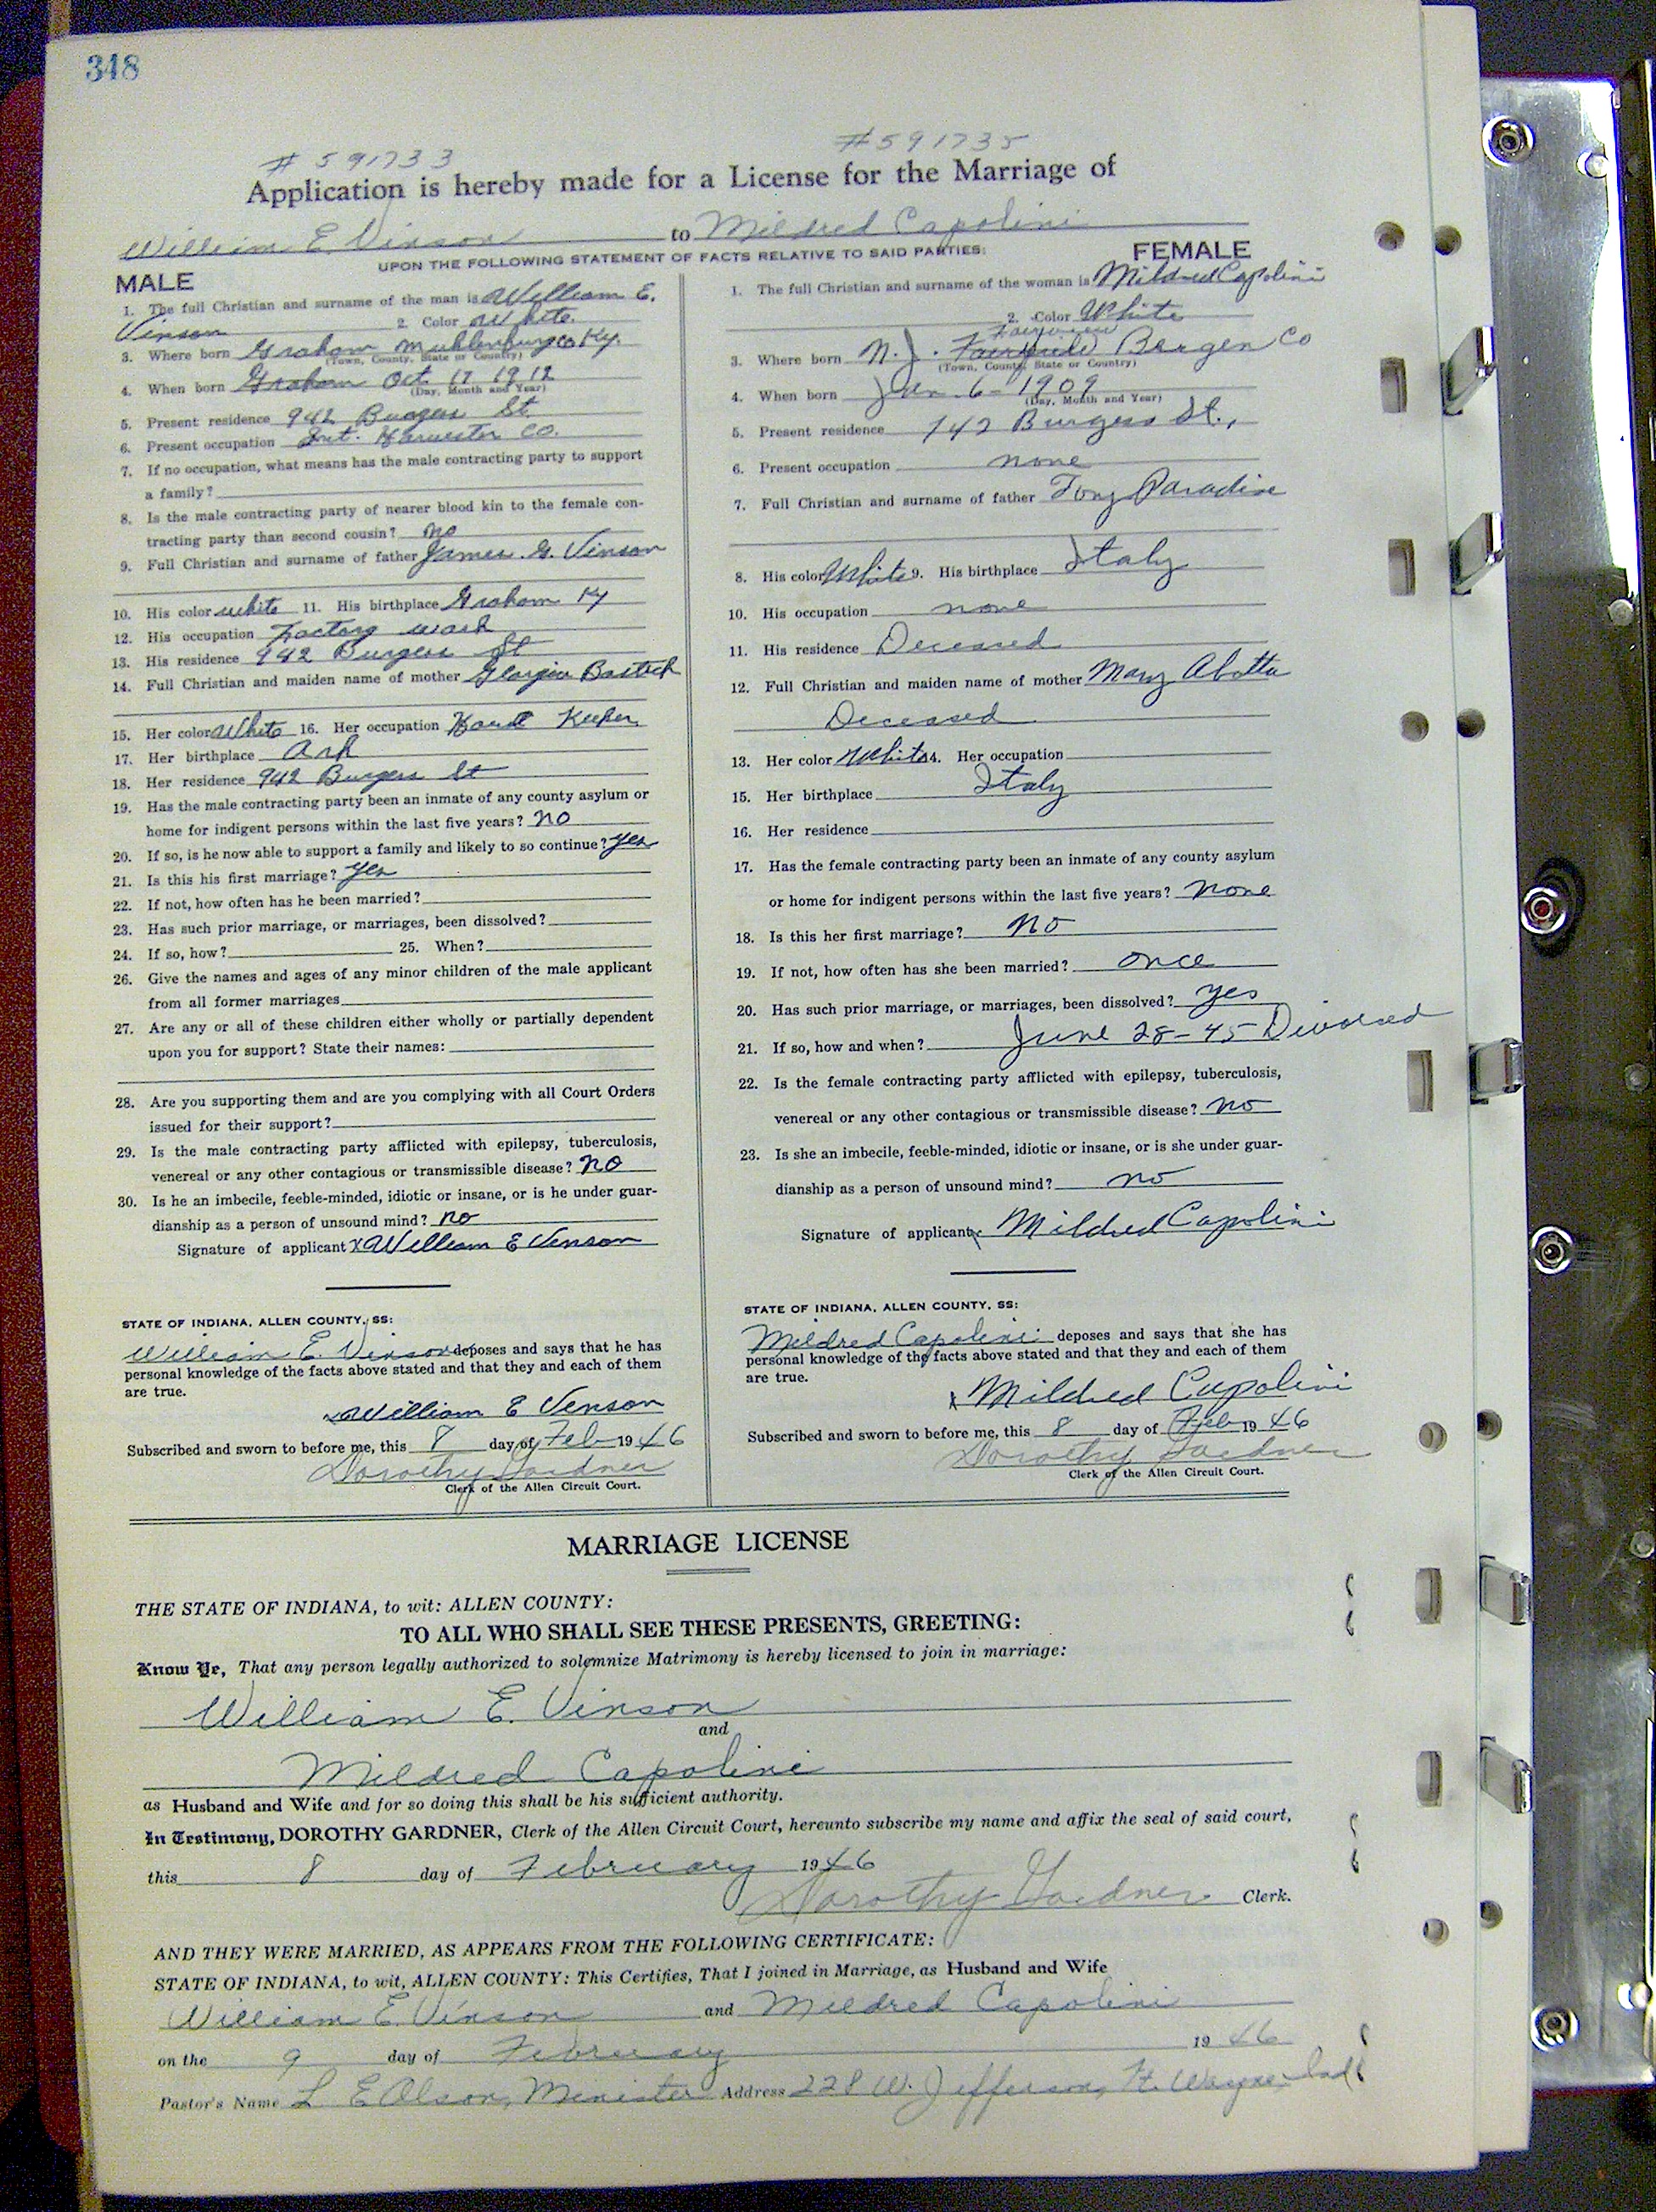 348
#591733
#591735
Application is hereby made for a License for the Marriage of
William E. Vinson to Mildred Capolini
UPON THE FOLLOWING STATEMENT OF FACTS RELATIVE TO SAID PARTIES:
MALE
1. The full Christian and surname of the man is William E.
Vinson 2. Color White
3. Where born Graham Muhlenburg Co Ky.
(Town, County, State or Country)
4. When born Graham Oct 17 1912
(Day, Month and Year)
5. Present residence 942 Burgess St.
6. Present occupation Int. Harvester Co.
7. If no occupation, what means has the male contracting party to support
a family?
8. Is the male contracting party of nearer blood kin to the female con-
tracting party than second cousin? no
9. Full Christian and surname of father James G. Vinson
10. His color white 11. His birthplace Graham Ky
12. His occupation Factory work
13. His residence 942 Burgess St
14. Full Christian and maiden name of mother Georgia
15. Her color White 16. Her occupation House Keeper
17. Her birthplace Ark
18. Her residence 942 Burgess St
19. Has the male contracting party been an inmate of any county asylum or
home for indigent persons within the last five years? no
20. If so, is he now able to support a family and likely to so continue? yes
21. Is this his first marriage? yes
22. If not, how often has he been married?
23. Has such prior marriage, or marriages, been dissolved?
24. If so, how? 25. When?
26. Give the names and ages of any minor children of the male applicant
from all former marriages
27. Are any or all of these children either wholly or partially dependent
upon you for support? State their names:
28. Are you supporting them and are you complying with all Court Orders
issued for their support?
29. Is the male contracting party afflicted with epilepsy, tuberculosis,
venereal or any other contagious or transmissible disease? no
30. Is he an imbecile, feeble-minded, idiotic or insane, or is he under guar-
dianship as a person of unsound mind? no
Signature of applicant x William E Vinson
STATE OF INDIANA, ALLEN COUNTY, SS:
William E. Vinson deposes and says that he has
personal knowledge of the facts above stated and that they and each of them
are true.
x William E Vinson
Subscribed and sworn to before me, this 8 day of Feb 1946
Dorothy Gardner
Clerk of the Allen Circuit Court.
FEMALE
1. The full Christian and surname of the woman is Mildred Capolini
2. Color White
Fairview
3. Where born N.J. Fairfield Bergen Co
(Town, County, State or Country)
4. When born Jan. 6-1909
(Day, Month and Year)
5. Present residence 742 Burgess St.,
6. Present occupation none
7. Full Christian and surname of father Tony Paradise
8. His color White 9. His birthplace Italy
10. His occupation none
11. His residence Deceased
12. Full Christian and maiden name of mother Mary Abatta
Deceased
13. Her color White 14. Her occupation
15. Her birthplace Italy
16. Her residence
17. Has the female contracting party been an inmate of any county asylum
or home for indigent persons within the last five years? none
18. Is this her first marriage? no
19. If not, how often has she been married? once
20. Has such prior marriage, or marriages, been dissolved? yes
21. If so, how and when? June 28-45 Divorced
22. Is the female contracting party afflicted with epilepsy, tuberculosis,
venereal or any other contagious or transmissible disease? no
23. Is she an imbecile, feeble-minded, idiotic or insane, or is she under guar-
dianship as a person of unsound mind? no
Signature of applicant x Mildred Capolini
STATE OF INDIANA, ALLEN COUNTY, SS:
Mildred Capolini deposes and says that she has
personal knowledge of the facts above stated and that they and each of them
are true.
x Mildred Capolini
Subscribed and sworn to before me, this 8 day of Feb 1946
Dorothy Gardner
Clerk of the Allen Circuit Court.
MARRIAGE LICENSE
THE STATE OF INDIANA, to wit: ALLEN COUNTY:
TO ALL WHO SHALL SEE THESE PRESENTS, GREETING:
Know Ye, That any person legally authorized to solemnize Matrimony is hereby licensed to join in marriage:
William E. Vinson
and
Mildred Capolini
as Husband and Wife and for so doing this shall be his sufficient authority.
In Testimony, DOROTHY GARDNER, Clerk of the Allen Circuit Court, hereunto subscribe my name and affix the seal of said court,
this 8 day of February 1946
Dorothy Gardner Clerk.
AND THEY WERE MARRIED, AS APPEARS FROM THE FOLLOWING CERTIFICATE:
STATE OF INDIANA, to wit, ALLEN COUNTY: This Certifies, That I joined in Marriage, as Husband and Wife
William E. Vinson and Mildred Capolini
on the 9 day of February 1946
Pastor's Name L E Olson, Minister Address 228 W. Jefferson, Ft. Wayne Ind